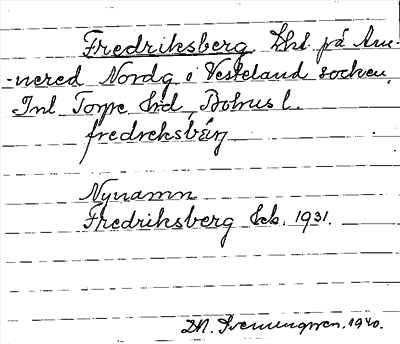 Fredriksberg Lht. på Am-
-nered Nordg. o Vesteland socken,
Inl Torpe hd, Bohus l.
fredreksbärj
Nynamn
Fredriksberg Leb. 1931.
DN. 1940.